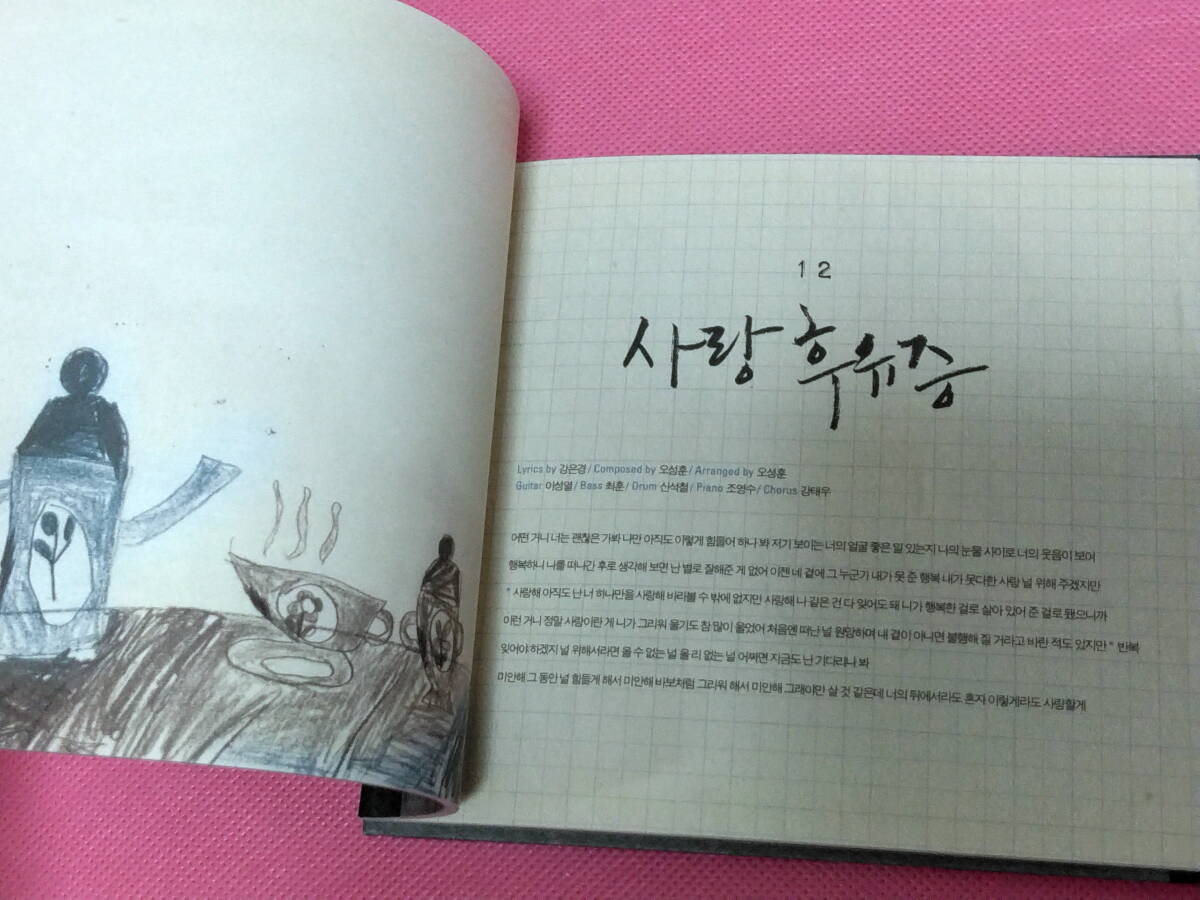 12
사랑 후유증
Lyrics by 강은경 / Composed by 오성훈 / Arranged by 오성훈
Guitar 이성열 / Bass 최훈 / Drum 신석철 / Piano 조영수 / Chorus 강태우
어떤 거니 너는 괜찮은 가봐 나만 아직도 이렇게 힘들어 하나 봐 저기 보이는 너의 얼굴 좋은 일 있는지 나의 눈물 사이로 너의 웃음이 보여
행복하니 나를 떠나간 후로 생각해 보면 난 별로 잘해준 게 없어 이젠 네 곁에 그 누군가 내가 못 준 행복 내가 못다한 사랑 널 위해 주겠지만
" 사랑해 아직도 난 너 하나만을 사랑해 바라볼 수 밖에 없지만 사랑해 나 같은 건 다 잊어도 돼 니가 행복한 걸로 살아 있어 준 걸로 됐으니까
이런 거니 정말 사랑이란 게 니가 그리워 울기도 참 많이 울었어 처음엔 떠난 널 원망하며 내 곁이 아니면 불행해 질 거라고 바란 적도 있지만 " 반복
잊어야 하겠지 널 위해서라면 올 수 없는 널 올 리 없는 널 어쩌면 지금도 난 기다리나 봐
미안해 그 동안 널 힘들게 해서 미안해 바보처럼 그리워 해서 미안해 그래야만 살 것 같은데 너의 뒤에서라도 혼자 이렇게라도 사랑할게